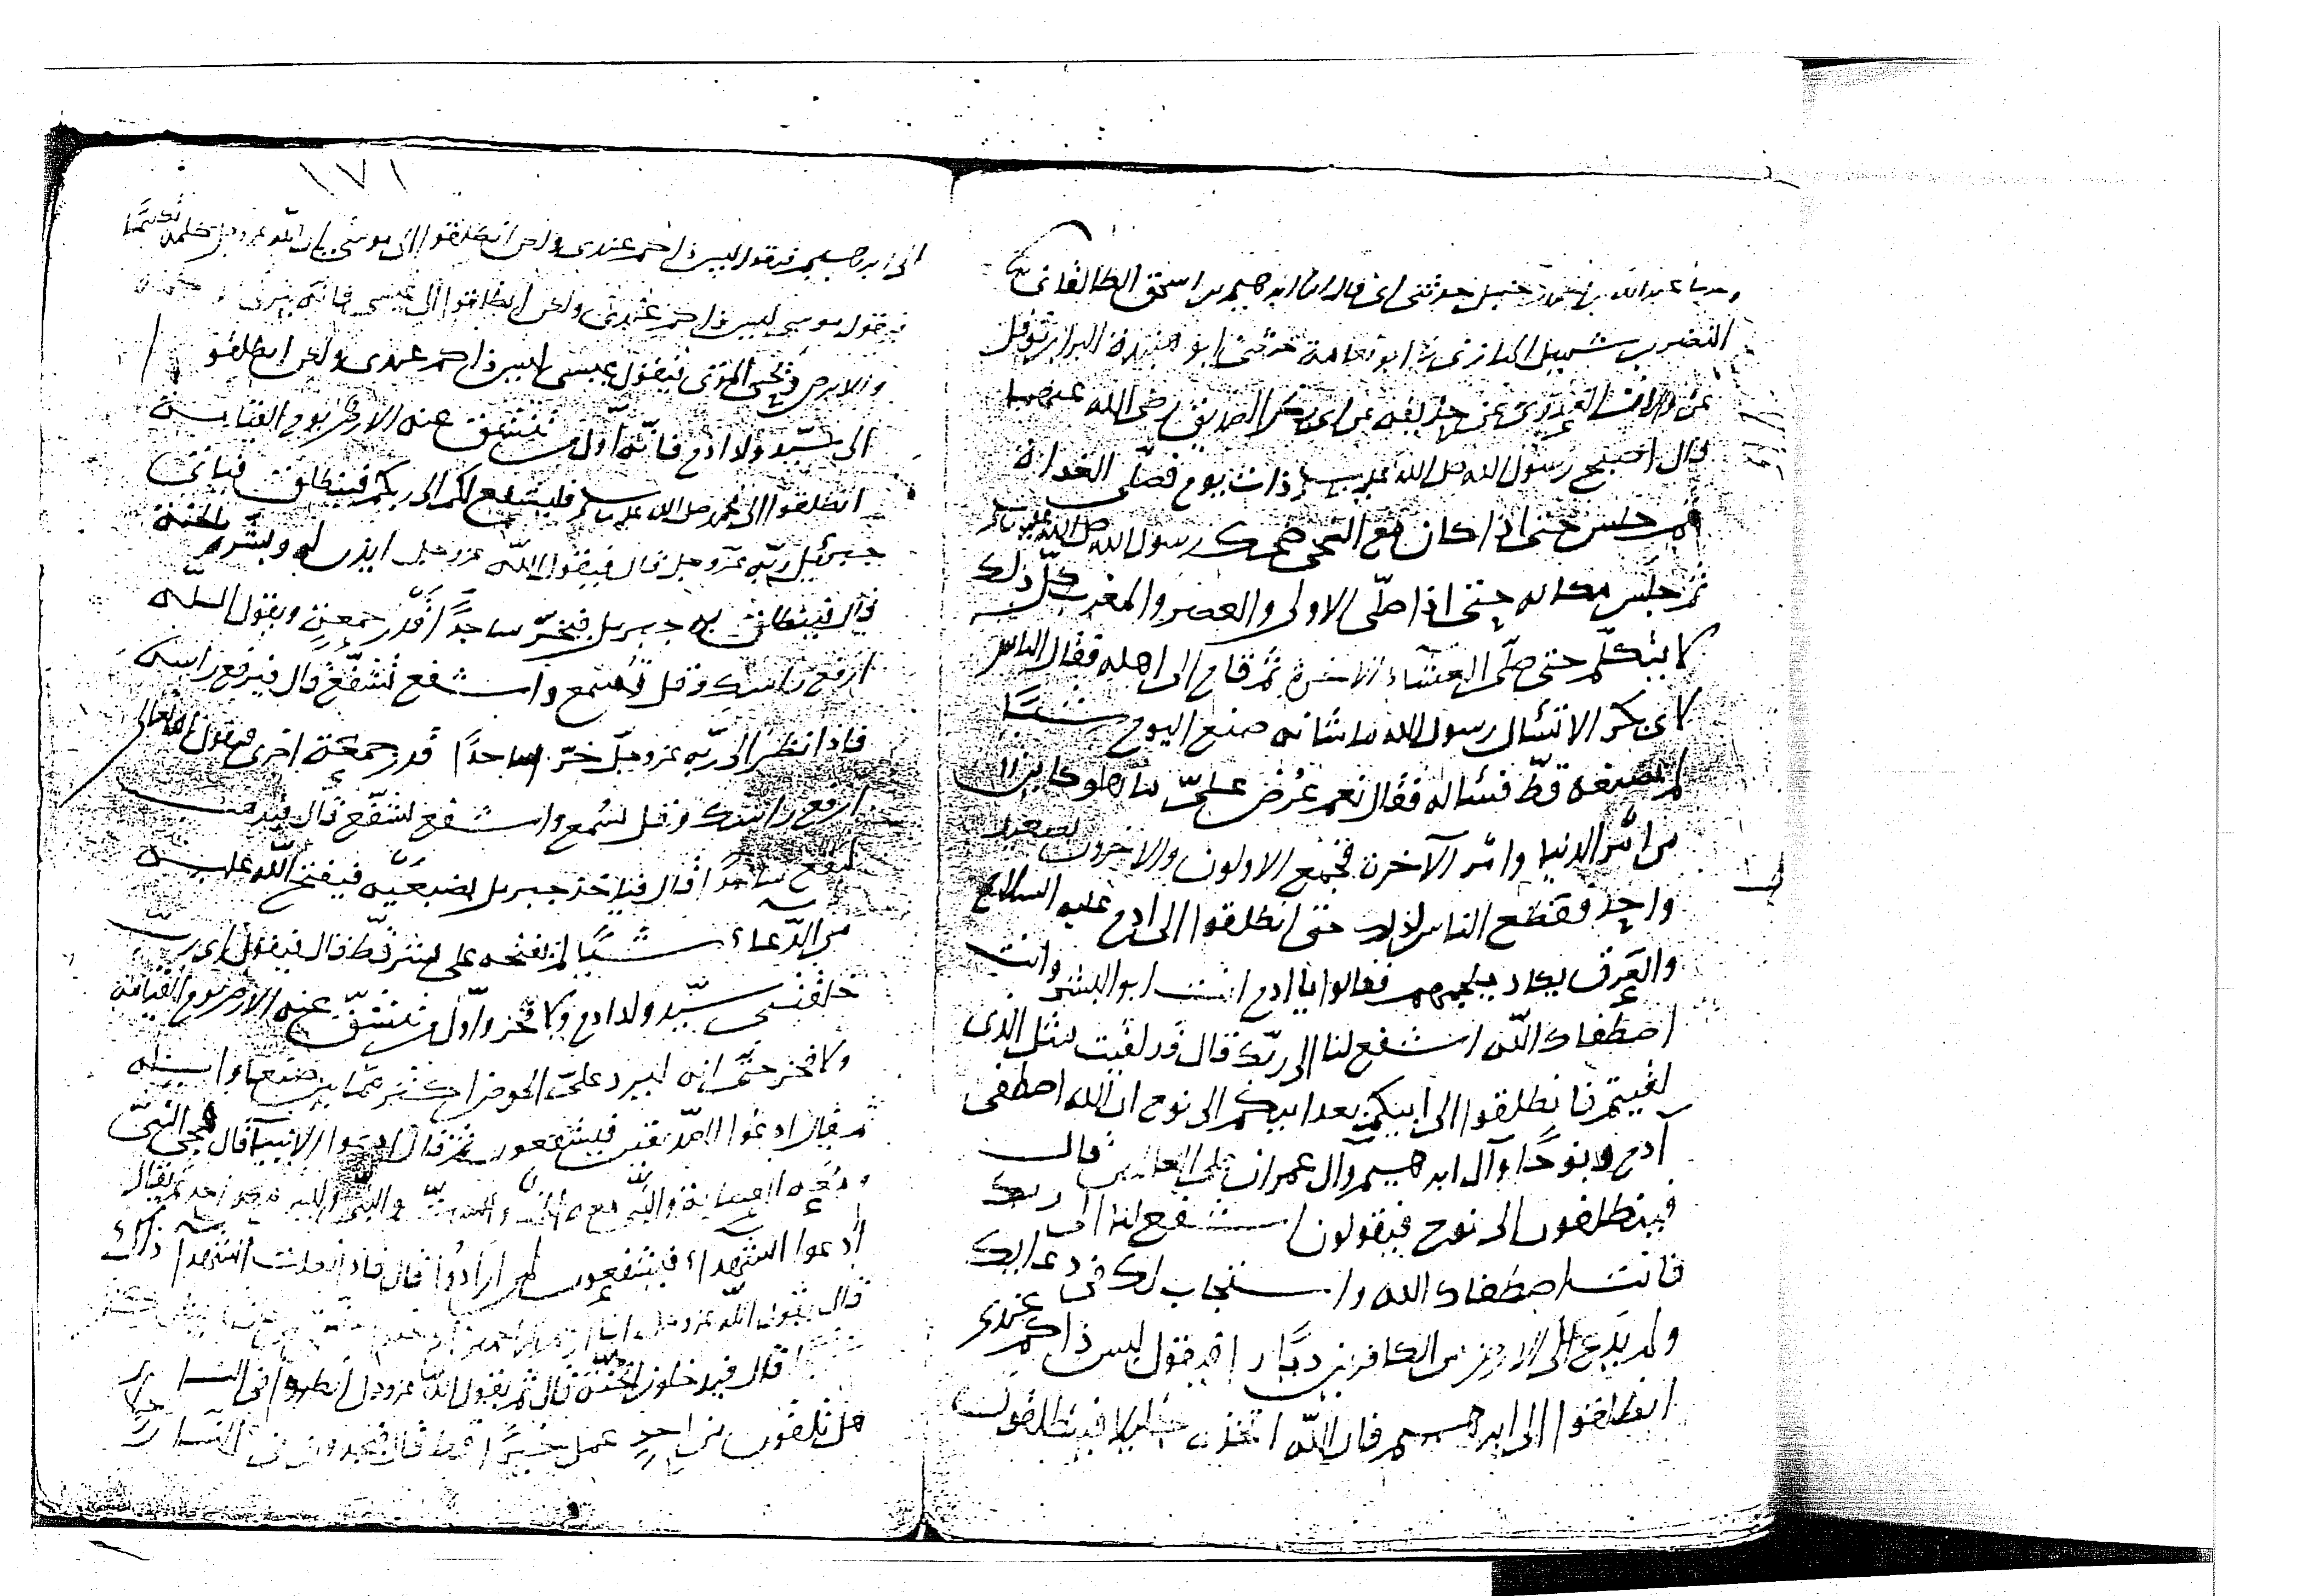 وحدثنا عبدالله بن احمد بن حنبل حدثني ابي قال انا ابرهيم بن اسحق الطالقاني
النضر بن شميل المازني انا ابو نعامة حدثني ابو هنيدة البراء بن نوفل
عن والان العدوي عن حذيفة عن ابي بكر الصديق رضي الله عنهما
قال اصبح رسول الله صلى الله عليه وسلم ذات يوم فصلى الغداة
ثم جلس حتى اذا كان مع الضحى ضحك رسول الله صلى الله عليه وسلم
ثم جلس مكانه حتى اذا صلى الاولى والعصر والمغرب كل ذلك
لا يتكلم حتى صلى العشاء الاخرة ثم قام الى اهله فقال الناس
لابي بكر الا تسأل رسول الله ما شانه صنع اليوم شيئا
لم يصنعه قط فسأله فقال نعم عُرض عليّ ما هو كاين
من امر الدنيا وامر الآخرة فجمع الاولون والاخرون بصعيد
واحد فقطع الناس لذلك حتى انطلقوا الى ادم عليه السلام
والعرق يكاد يلجمهم فقالوا يا ادم انت ابو البشر وانت
اصطفاك الله اشفع لنا الى ربك قال قد لقيت مثل الذي
لقيتم فانطلقوا الى ابيكم بعد ابيكم الى نوح ان الله اصطفى
آدم ونوحًا وآل ابرهيم وآل عمران على العالمين قال
فينطلقون الى نوح فيقولون اشفع لنا الى ربك
فانت اصطفاك الله واستجاب لك في دعايك
ولم يدع على الارض من الكافرين ديّارا فيقول ليس ذاكم عندي
انطلقوا الى ابرهيم فان الله اتخذه خليلا فينطلقون
١٧١
الى ابرهيم فيقول ليس ذاكم عندي ولكن انطلقوا الى موسى فان الله عز وجل كلمه تكليمًا
فيقول موسى ليس ذاكم عندي ولكن انطلقوا الى عيسى فانه يبرئ الاكمه
والابرص ويحيي الموتى فيقول عيسى ليس ذاكم عندي ولكن انطلقوا
الى سيّد ولد ادم فانّه اول من تنشق عنه الارض يوم القيامة
انطلقوا الى محمد صلى الله عليه وسلم فليشفع لكم الى ربكم فينطلق فياتي
جبرئيل ربّه عز وجل قال فيقول الله عز وجل ايذن له وبشره بالجنة
قال فينطلق به جبريل فيخرّ ساجدًا قدر جمعةٍ ويقول الله
ارفع راسك وقل تُسمع واشفع تشفّع قال فيرفع راسه
فاذا نظر الى ربّه عز وجل خرّ ساجدًا قدر جمعة اخرى فيقول الله تعالى
ارفع راسك وقل تسُمع واشفع تشفّع قال فيذهب
ليقع ساجدًا قال فياخذ جبريل بضبعَيْه فيفتح الله عليه
من الدّعاء شيئًا لم يفتحه على بشر قطّ قال فيقول اي ربّ
خلقتني سيّد ولد ادم ولا فخر واوّل من تنشقّ عنه الارض يوم القيامة
ولا فخر حتّى انه ليرد عليّ الحوض اكثر ممّا بين صنعا وايله
ثم يقال ادعوا الصدّيقين فيشفعون ثم قال ادعوا الانبيآ قال فيجئ النبيّ
ومعه العصابة والنبي معه الخمسة والستة والنبيّ وليس معه احد ثم يقال
ادعوا الشهدآء فيشفعون لمن ارادُوا قال فاذا فعلت الشهدآ ذلك
قال يقول الله عز وجل انا ارحم الراحمين
قال فيدخلون الجنّة قال ثم يقول الله عز وجل انظروا في النار
هل تلقون من احدٍ عمل خيرًا قط قال فيجدون في النار رجلا